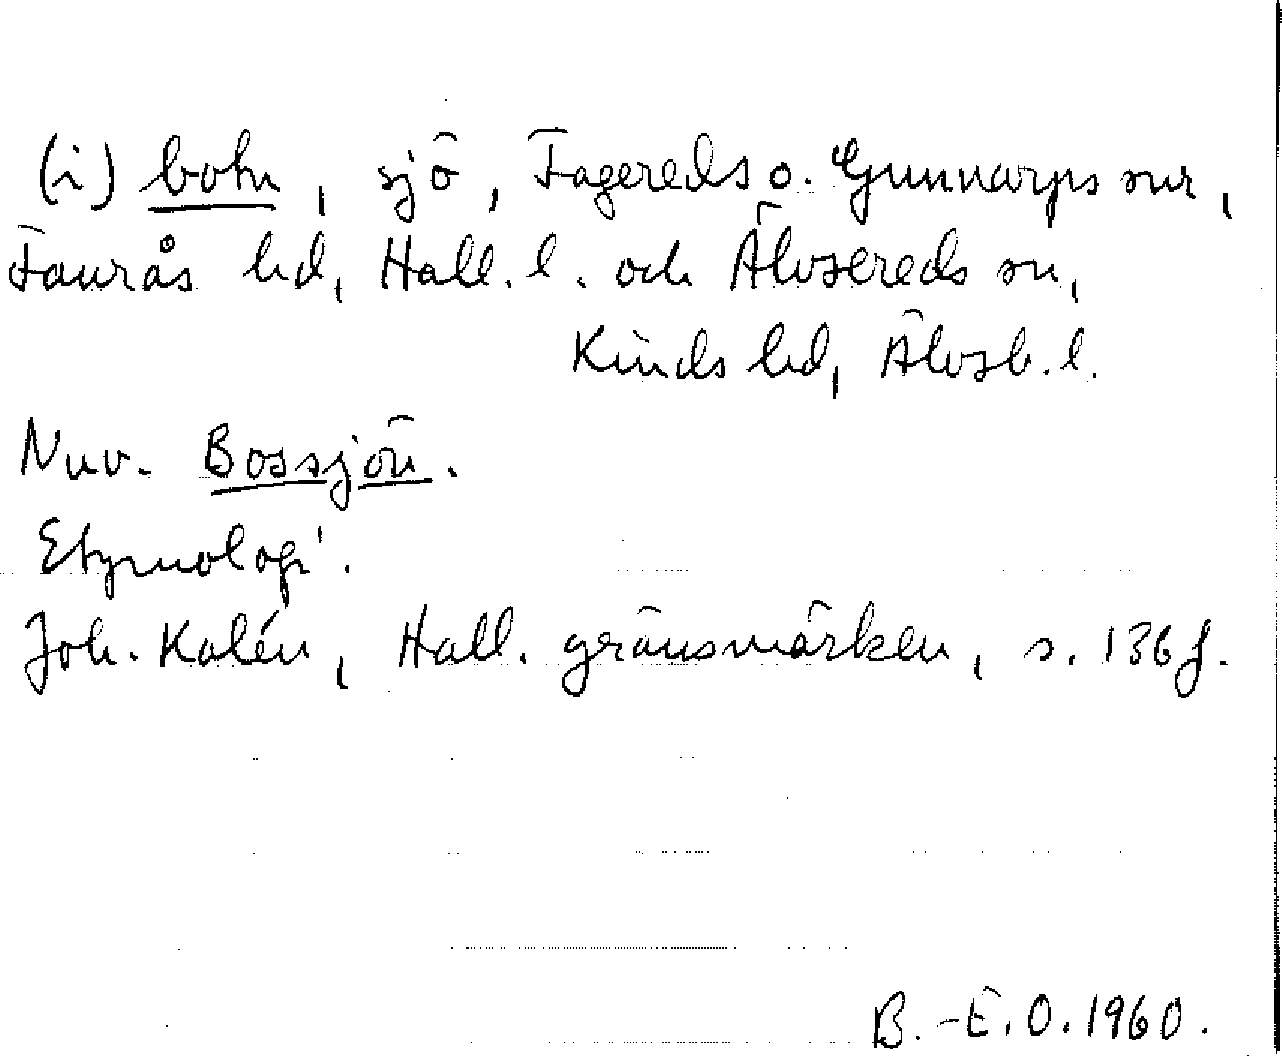 (i) botn, sjö, Fagereds o. Gunnarps snr,
Faurås hd, Hall. l. och Älvsereds sn,
Kinds hd, Älvsb. l.
Nuv. Bossjön.
Etymologi.
Joh. Kalén, Hall. gränsmärken, s. 136 f.
B.-E. O. 1960.